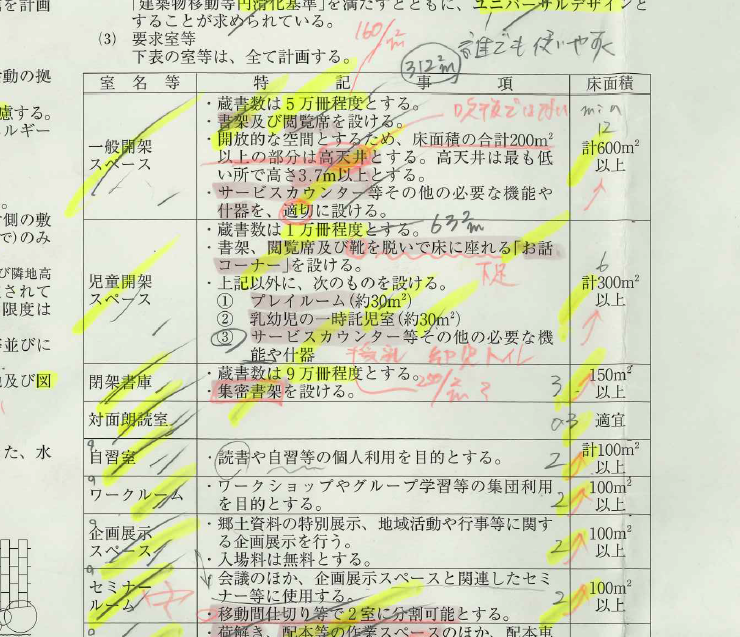 を計画
「建築物移動等円滑化基準」を満たすとともに、ユニバーサルデザインと
することが求められている。
(3) 要求室等
下表の室等は、全て計画する。
160/㎡
312㎡
誰でも使いやす
動の拠
慮する。
ルギー
側の敷
で)のみ
び隣地高
されて
限度は
等並びに
及び図
た、水
室名等 特記事項 床面積
一般開架
スペース
・蔵書数は5万冊程度とする。
・書架及び閲覧席を設ける。
・開放的な空間とするため、床面積の合計200m²
以上の部分は高天井とする。高天井は最も低
い所で高さ3.7m以上とする。
・サービスカウンター等その他の必要な機能や
什器を、適切に設ける。
min
12
計600m²
以上
児童開架
スペース
・蔵書数は1万冊程度とする。
・書架、閲覧席及び靴を脱いで床に座れる「お話
コーナー」を設ける。
・上記以外に、次のものを設ける。
① プレイルーム(約30m²)
② 乳幼児の一時託児室(約30m²)
③ サービスカウンター等その他の必要な機
能や什器
632㎡
下足
授乳 幼児トイレ
6
計300m²
以上
閉架書庫
・蔵書数は9万冊程度とする。
・集密書架を設ける。
200/㎡?
3
150m²
以上
対面朗読室
0.3
適宜
自習室
・読書や自習等の個人利用を目的とする。
2
計100m²
以上
ワークルーム
・ワークショップやグループ学習等の集団利用
を目的とする。
2
100m²
以上
企画展示
スペース
・郷土資料の特別展示、地域活動や行事等に関す
る企画展示を行う。
・入場料は無料とする。
2
100m²
以上
セミナー
ルーム
・会議のほか、企画展示スペースと関連したセミ
ナー等に使用する。
・移動間仕切り等で2室に分割可能とする。
2
100m²
以上
・荷解き、配本等の作業スペースのほか、配本車